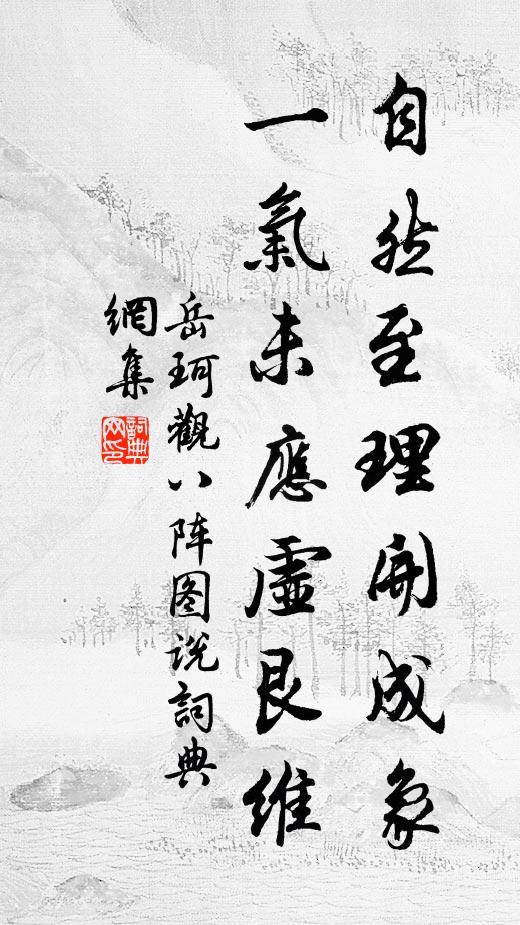 自然至理開成象
一氣未應虛艮維
岳珂觀八阵图说詞典
網集
詞典網印